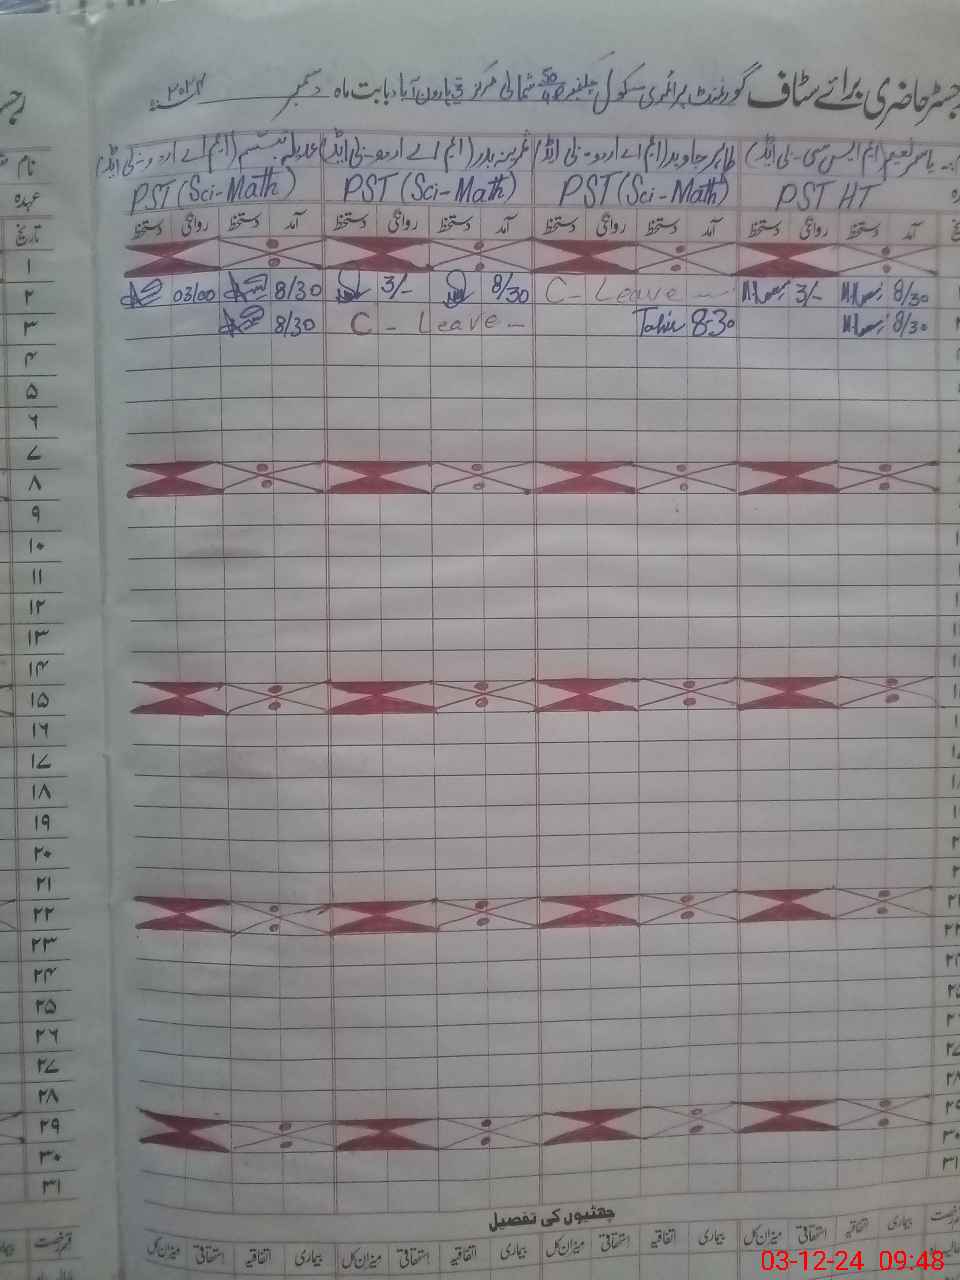 رجسٹر حاضری برائے سٹاف گورنمنٹ پرائمری سکول چک نمبر شمالی مرکز ہارون آباد بابت ماہ دسمبر ۲۰۲۴
یاسر نعیم (ایم ایس سی - بی ایڈ) طاہر جاوید (ایم اے اردو - بی ایڈ) ثمرینہ بدر (ایم اے اردو - بی ایڈ) عدیلہ تبسم (ایم اے اردو - بی ایڈ) نام
PST HT PST (Sci-Math) PST (Sci-Math) PST (Sci-Math) عہدہ
آمد دستخط روانگی دستخط آمد دستخط روانگی دستخط آمد دستخط روانگی دستخط آمد دستخط روانگی دستخط تاریخ
۱
8/30 3/- C - Leave - 8/30 3/- 8/30 03/00 ۲
8/30 8:30 Tahir C - Leave - 8/30 ۳
۴
۵
۶
۷
۸
۹
۱۰
۱۱
۱۲
۱۳
۱۴
۱۵
۱۶
۱۷
۱۸
۱۹
۲۰
۲۱
۲۲
۲۳
۲۴
۲۵
۲۶
۲۷
۲۸
۲۹
۳۰
۳۱
چھٹیوں کی تفصیل
قسم رخصت بیماری اتفاقیہ استحقاقی میزان کل بیماری اتفاقیہ استحقاقی میزان کل بیماری اتفاقیہ استحقاقی میزان کل بیماری اتفاقیہ استحقاقی میزان کل
03-12-24 09:48